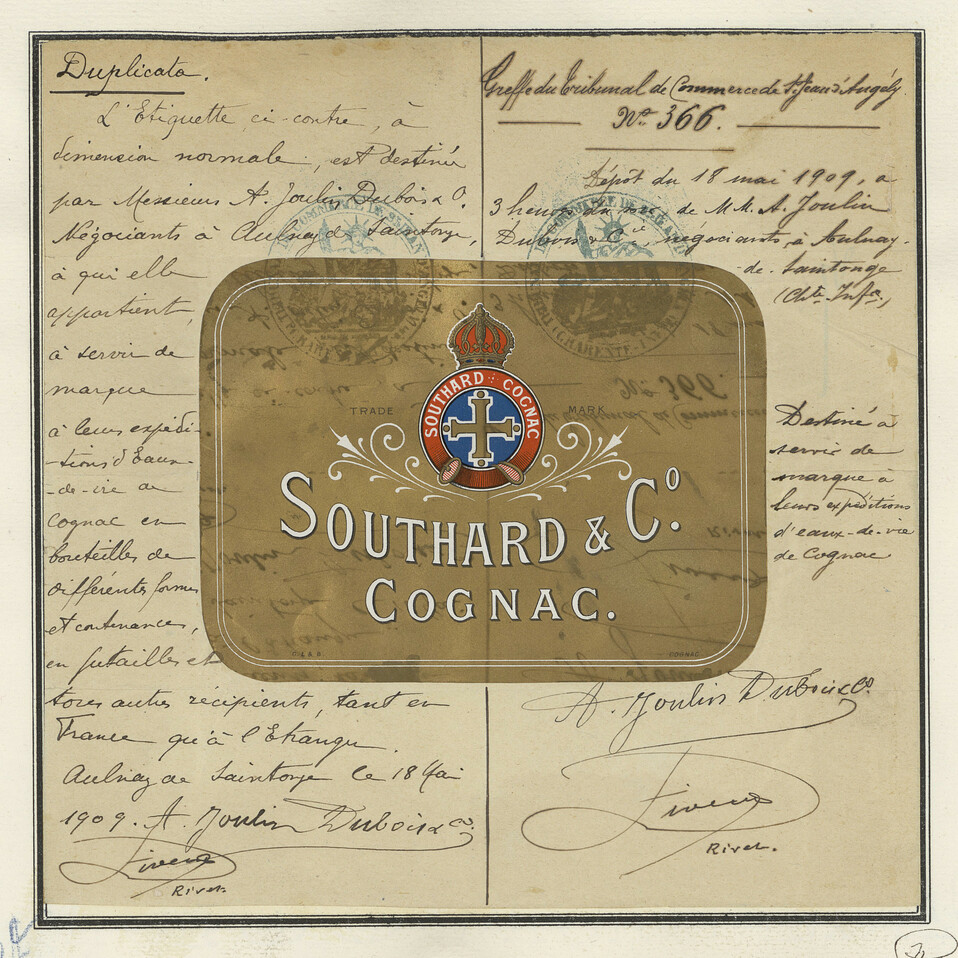 Duplicata.
L'Etiquette ci-contre, à
dimension normale, est destinée
par Messieurs A. Joulin Dubois & Cº.
Négociants à Aulnay de Saintonge,
à qui elle
appartient,
à servir de
marque
à leurs expédi-
-tions d'Eaux-
-de-vie de
Cognac en
bouteilles de
différentes formes
et contenances,
en futailles et
tous autres récipients, tant en
France qu'à l'Etranger.
Aulnay de Saintonge le 18 Mai
1909. A. Joulin Dubois & Cº.
Rivet
Greffe du Tribunal de Commerce de St Jean d'Angély
Nº 366.
Dépôt du 18 mai 1909, à
3 heures du soir de MM. A. Joulin
Dubois & Cie, négociants, à Aulnay-
-de-Saintonge
(Chte Infre)
Destiné à
servir de
marque à
leurs expéditions
d'eaux-de-vie
de Cognac
A. Joulin Dubois & Cº
Rivet.
SOUTHARD : COGNAC
TRADE MARK
SOUTHARD & Cº.
COGNAC.
COGNAC